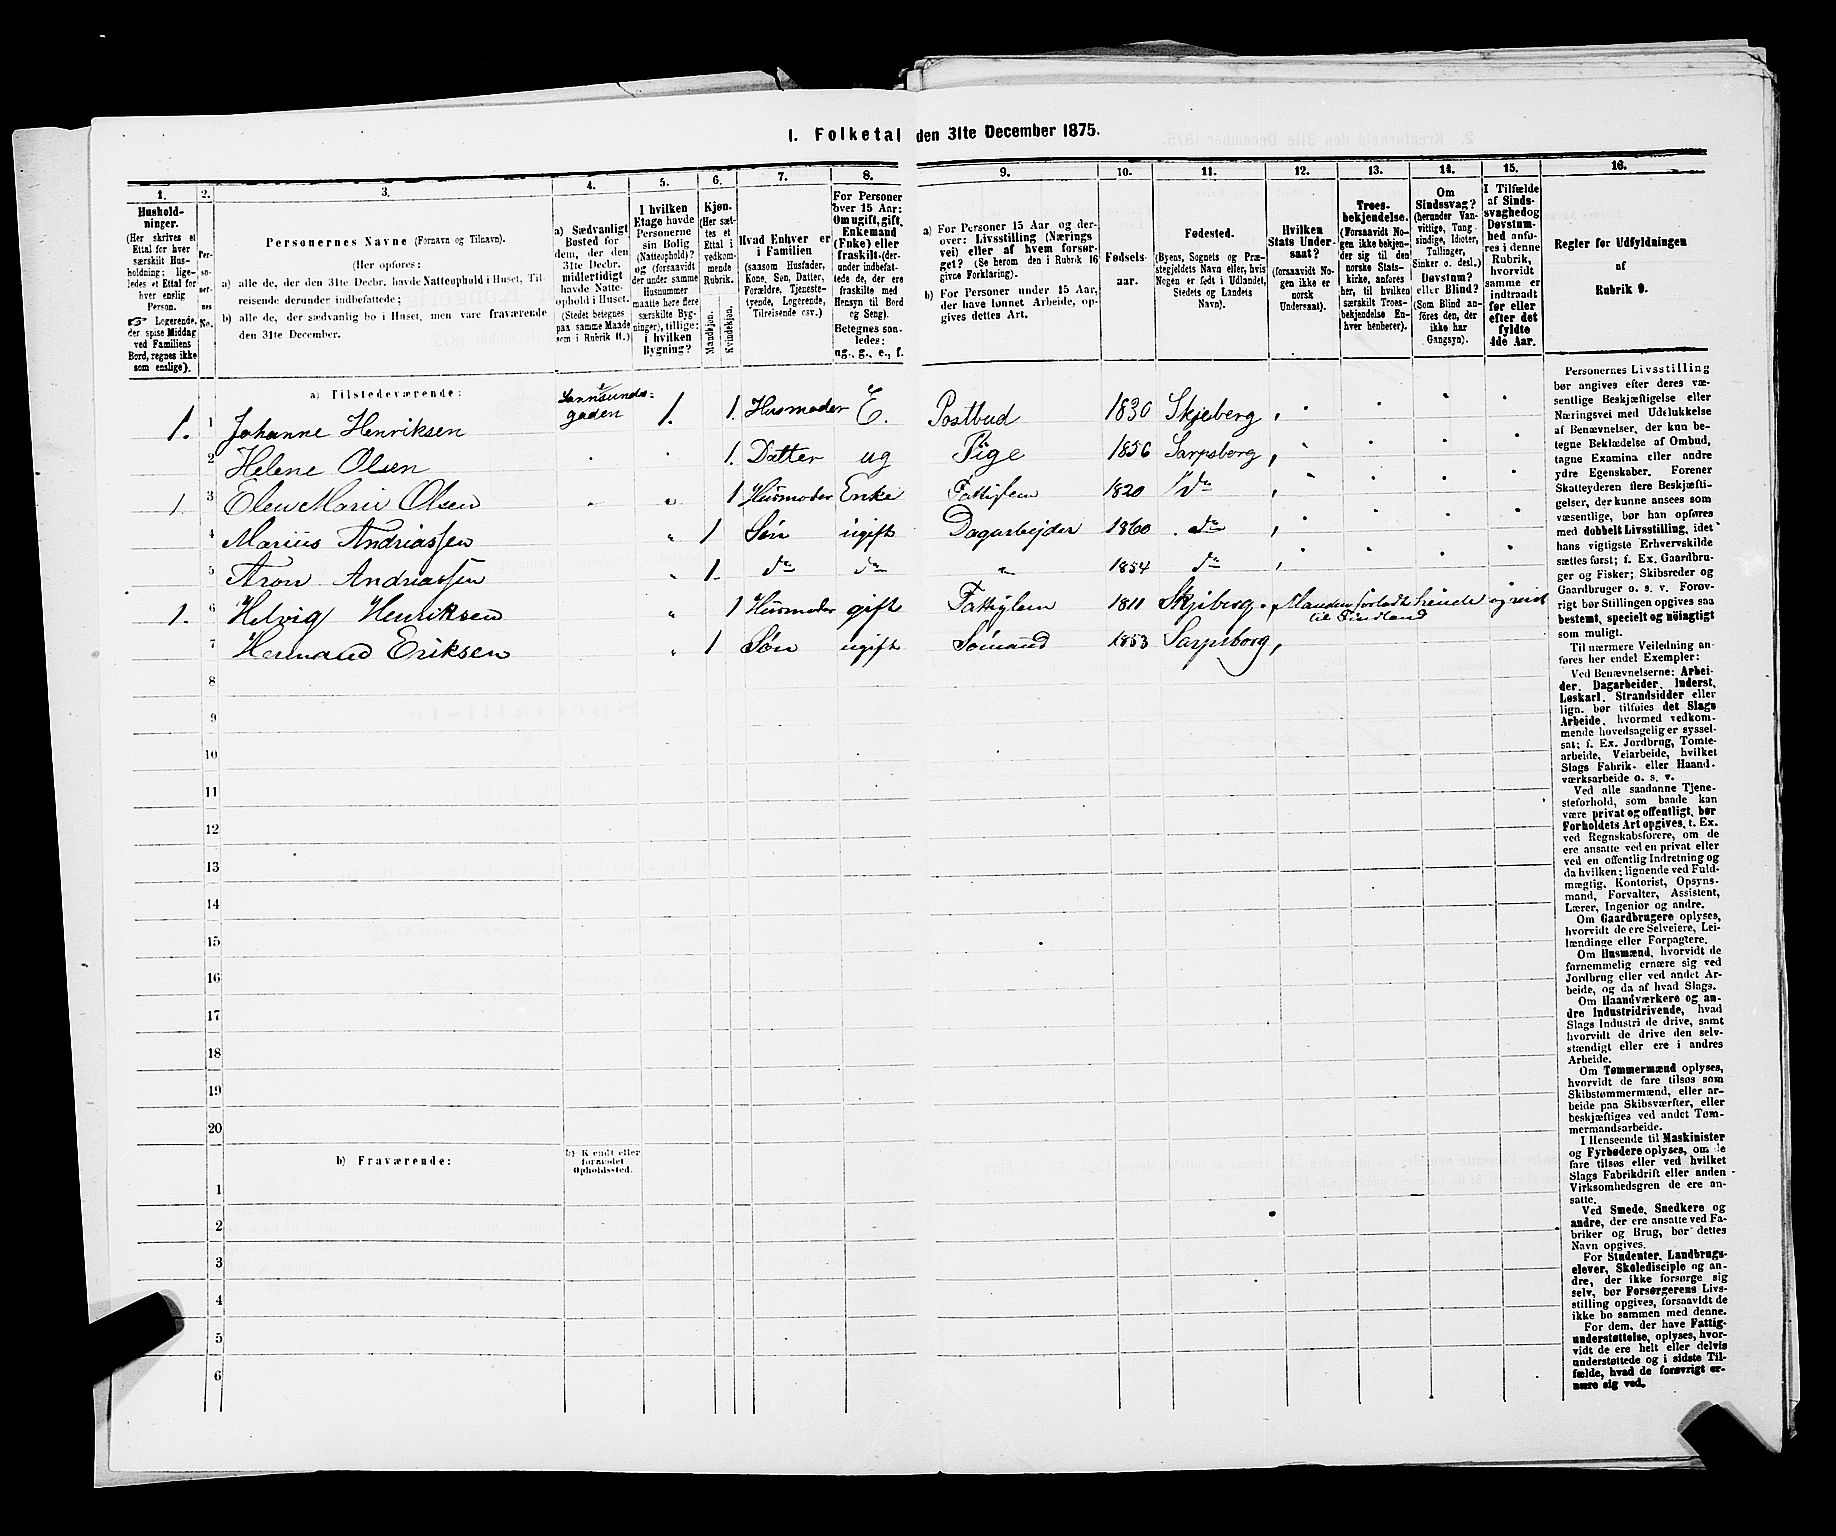 1. Folketal den 31te December 1875.
1. 2. 3. 4. 5. 6. 7. 8. 9. 10. 11. 12. 13. 14. 15. 16.
Husholdninger.
(Her skrives et
Ettal for hver
særskilt Husholdning;
ligeledes et Ettal for
hver enslig
Person.
☞ Logerende,
der spise Middag
ved Familiens
Bord, regnes ikke
som enslige).
Personernes No.
Personernes Navne (Fornavn og Tilnavn).
(Her opføres:
a) alle de, der den 31te Decbr. havde Natteophold i Huset, Tilreisende derunder indbefattede;
b) alle de, der sædvanlig bo i Huset, men vare fraværende
den 31te December.
a) Sædvanligt
Bosted for
dem, der den
31te Decbr.
midlertidigt
havde Natteophold i Huset.
(Stedet betegnes
paa samme Maade
som i Rubrik 11.)
I hvilken
Etage havde
Personerne
sin Bolig
(Natteophold)?
og (forsaavidt
der under samme
Husnummer
maatte høre flere
særskilte Bygninger), tillige:
i hvilken
Bygning?
Kjøn.
(Her sættes et
Ettal i
vedkommende
Rubrik.
Mandkjøn.
Kvindekjøn.
Hvad Enhver er
i Familien
(saasom Husfader,
Kone, Søn, Datter,
Forældre, Tjenestetyende, Logerende,
Tilreisende osv.)
For Personer
over 15 Aar:
Om ugift, gift,
Enkemand
(Enke) eller
fraskilt.(derunder indbefattede, der ere
fraskilte med
Hensyn til Bord
og Seng).
Betegnes saaledes:
ug., g., e., f.
a) For Personer 15 Aar og derover: Livsstilling (Næringsvei) eller af hvem forsørget? (Se herom den i Rubrik 16
givne Forklaring).
b) For Personer under 15 Aar,
der have lønnet Arbeide, opgives dettes Art.
Fødselsaar.
Fødested.
(Byens, Sognets og Præstegjeldets Navn eller, hvis
Nogen er født i Udlandet,
Stedets og Landets
Navn).
Hvilken
Stats Undersaat?
(forsaavidt Nogen ikke er
norsk
Undersaat).
Troesbekjendelse.
(Forsaavidt Nogen ikke bekjender sig til den
norske Statskirke, anføres
her, til hvilken
særskilt Troesbekjendelse Enhver henhører).
Om
Sindssvag?
(herunder Vanvittige, Tungsindige, Idioter,
Tullinger,
Sinker o. desl.)
Døvstum?
eller Blind?
(Som Blind anføres den, der
ikke har
Gangsyn).
I Tilfælde
af Sindssvaghed og
Døvstumhed anføres i denne
Rubrik,
hvorvidt
samme er
indtraadt
før eller
efter det
fyldte
4de Aar.
Regler for Udfyldningen
af
Rubrik 9.
a) Tilstedeværende:
1. 1 Johanne Henriksen Sannesunds-gaden 1. 1. Husmoder E. Postbud 1830 Skjeberg
2 Helene Olsen 1. Datter ug Pige 1856 Sarpsborg
1. 3 Olene Marie Olsen 1 Husmoder Enke Fattiglem 1820 do
4 Marius Andriassen 1 Søn ugift Dagarbejder 1860 do
5 Aron Andriassen 1. do do 1854 do
1. 6 Helvig Henriksen 1 Husmoder gift Fattiglem 1811 Skjeberg. Manden forlodt hende og reist
til Findland
7 Hermand Eriksen 1 Søn ugift Sømand 1853 Sarpsborg
8
9
10
11
12
13
14
15
16
17
18
19
20
b) Fraværende:
b) Kjendt eller
formodet
Opholdssted.
1
2
3
4
5
6
Personernes Livsstilling
bør angives efter deres væsentlige Beskjæftigelse eller
Næringsvei med Udelukkelse
af Benævnelser, der kun betegne Beklædelse af Ombud,
tagne Examina eller andre
ydre Egenskaber. Forener
Skatteyderen flere Beskjæftigelser, der kunne ansees som
væsentlige, bør han opføres
med dobbelt Livsstilling, idet
hans vigtigste Erhvervskilde
sættes først; f. Ex. Gaardbruger og Fisker; Skibsreder og
Gaardbruger o. s. v. Forøvrigt bør Stillingen opgives saa
bestemt, specielt og nöiagtigt
som muligt.
Til nærmere Veiledning anføres her endel Exempler:
Ved Benævnelserne: Arbeider, Dagarbeider, Inderst,
Løskarl, Strandsidder eller
lign. bør tilføies det Slags
Arbeide, hvormed vedkommende hovedsagelig er sysselsat; f. Ex. Jordbrug, Tomtearbeide, Veiarbeide, hvilket
Slags Fabrik- eller Haandværksarbeide o. s. v.
Ved alle saadanne Tjenesteforhold, som baade kan
være privat og offentligt, bør
Forholdets Art opgives, f. Ex.
ved Regnskabsførere, om de
ere ansatte ved en privat eller
ved en offentlig Indretning og
da hvilken; lignende ved Fuldmægtig, Kontorist, Opsynsmand, Forvalter, Assistent,
Lærer, Ingeniør og andre.
Om Gaardbrugere oplyses,
hvorvidt de ere Selveiere, Leilændinge eller Forpagtere.
Om Husmænd, hvorvidt de
fornemmelig ernære sig ved
Jordbrug eller ved andet Arbeide, og da af hvad Slags.
Om Haandværkere og andre Industridrivende, hvad
Slags Industri de drive, samt
hvorvidt de drive den selvstændigt eller ere i andres
Arbeide.
Om Tømmermænd oplyses,
hvorvidt de fare tilsøs som
Skibstømmermænd, eller arbeide paa Skibsværfter, eller
beskjæftiges ved andet Tømmermandsarbeide.
I Henseende til Maskinister
og Fyrbødere oplyses, om de
fare tilsøs eller ved hvilket
Slags Fabrikdrift eller anden
Virksomhedsgren de ere ansatte.
Ved Smede, Snedkere og
andre, der ere ansatte ved Fabriker og Brug, bør dettes
Navn opgives.
For Studenter, Landbrugselever, Skoledisciple og andre, der ikke forsørge sig
selv, bør Forsørgerens Livsstilling opgives, forsaavidt de
ikke bo sammen med denne.
For dem, der have Fattigunderstøttelse, oplyses, hvorvidt de ere helt eller delvis
understøttede og i sidste Tilfælde, hvad de forøvrigt ernære sig ved.